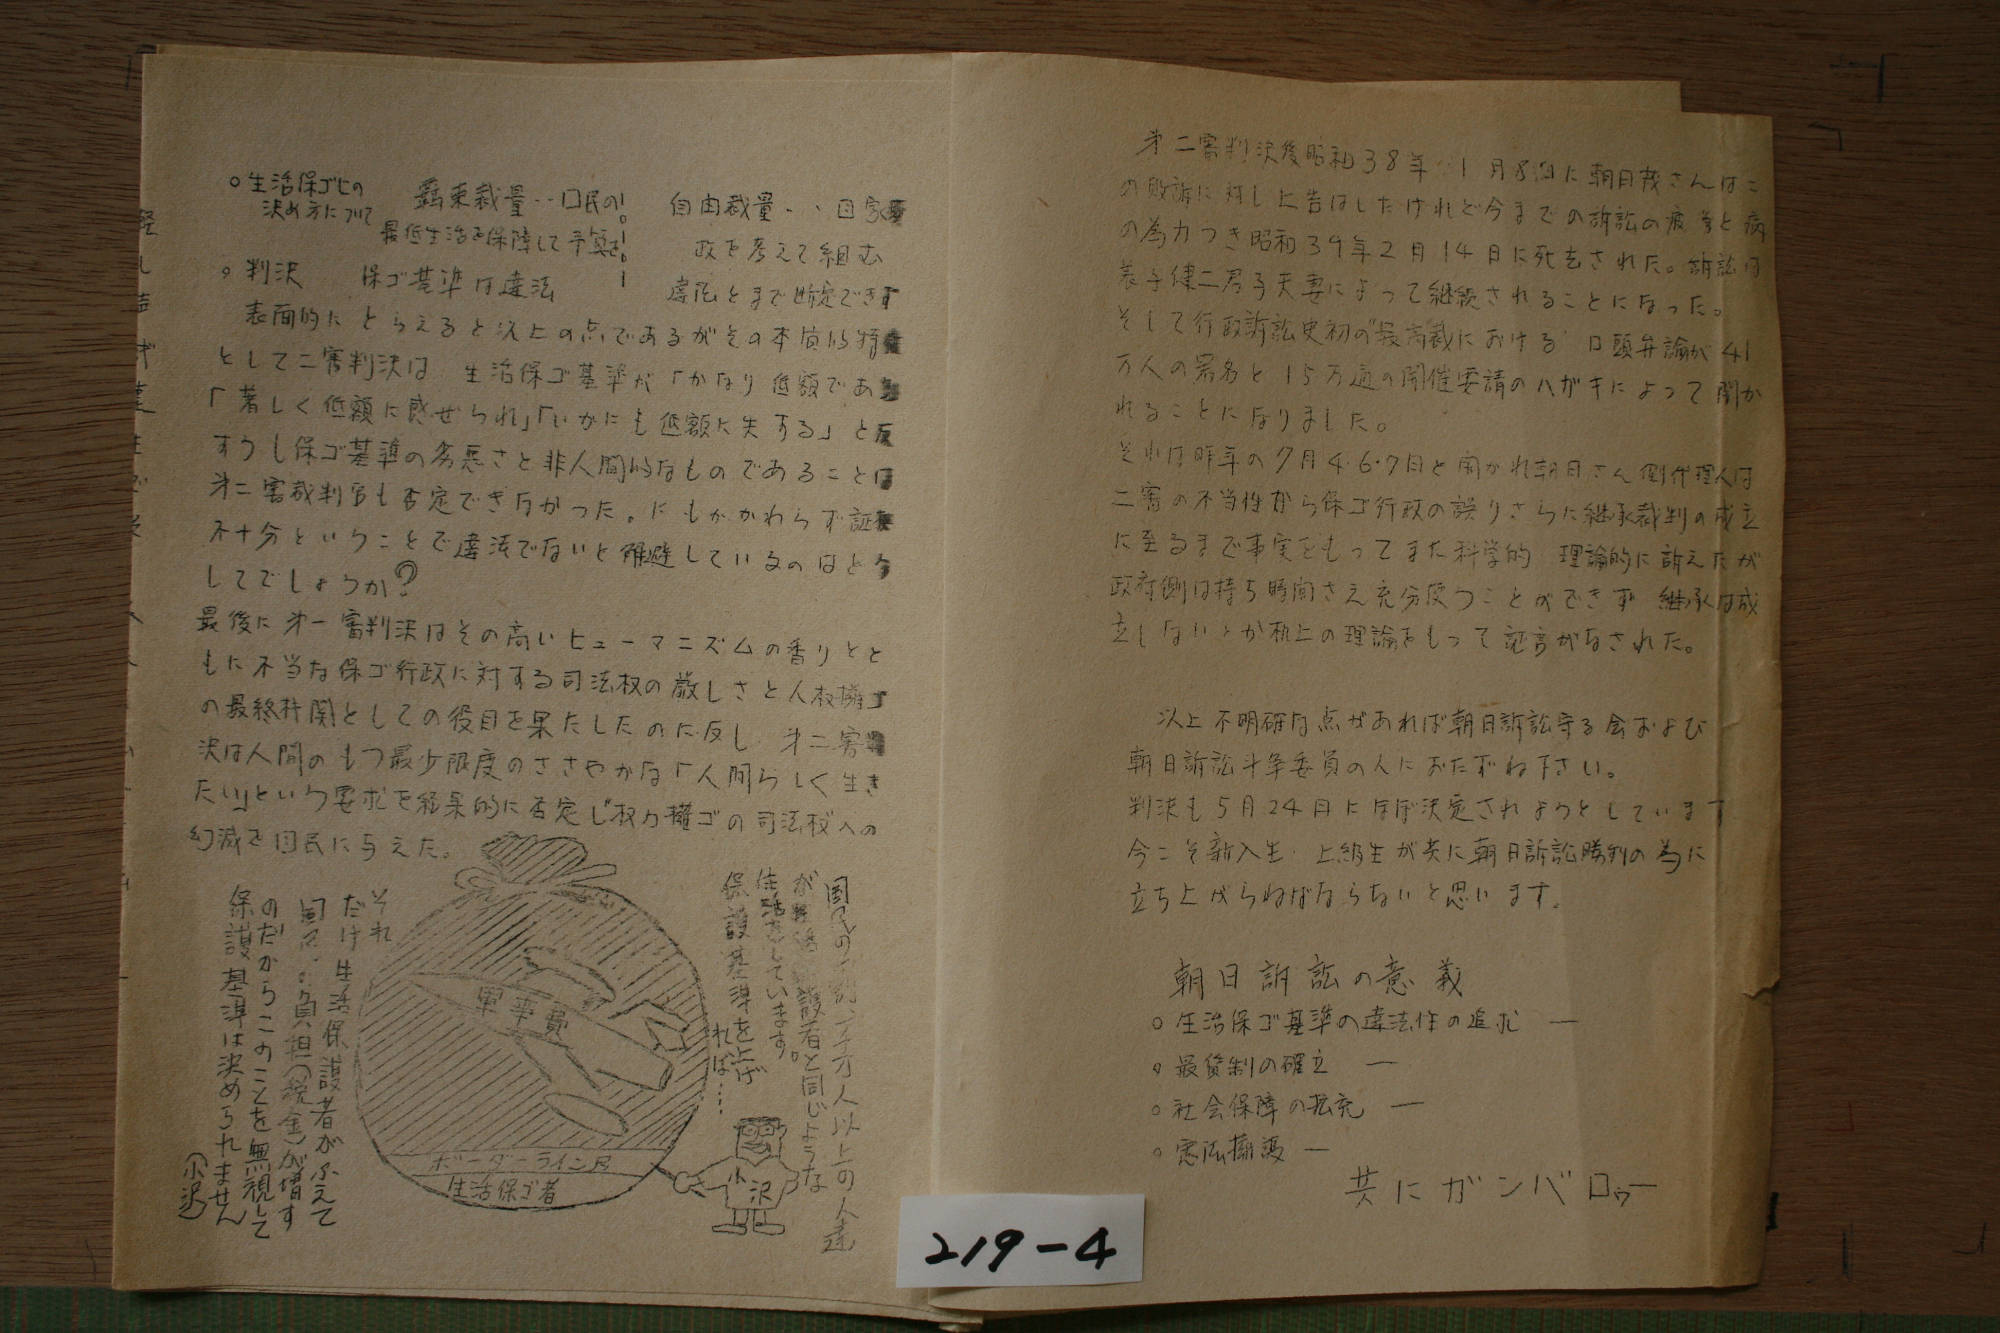 ○生活保ゴヒの
決め方について
羈束裁量‥国民の
最低生活を保障して予算を
自由裁量‥国家
政を考えて組む
○判決 保ゴ基準は違法
違法とまで断定できず
表面的にとらえると以上の点であるがその本質的特
として二審判決は 生活保ゴ基準が「かなり低額であ
「著しく低額に感ぜられ」「いかにも低額に失する」と
すうし保ゴ基準の劣悪さと非人間的なものであることは
第二審裁判官も否定できなかった。にもかかわらず証
不十分ということで違法でないと
しているのはどう
してでしょうか?
最後に第一審判決はその高いヒューマニズムの香りとと
もに不当な保ゴ行政に対する司法权の厳しさと人权擁ゴ
の最終杵関としての役目を果たしたのに反し 第二審判
決は人間のもつ最少限度のささやかな「人間らしく生き
たい」という要求を結果的に否定し权力擁ゴの司法权への
幻滅を国民に与えた。
国民の
千万人以上の人達
護者と同じような
生活をしています。
保護基準を上げ
れば…
軍事費
ボーダーライン層
生活保ゴ者
小沢
それ
だけ生活保護者がふえて
負担(税金)が増す
のだからこのことを無視して
保護基準は決められません
(小沢)
第二審判決後昭和38年11月8日に朝日茂さんはこ
の敗訴に対し上告はしたけれど今までの訴訟の疲労と病
の為力つき昭和39年2月14日に死去された。訴訟は
養子健二君子夫妻によって継続されることになった。
そして行政訴訟史初の“最高裁における”口頭弁論が41
万人の署名と15万通の開催要請のハガキによって開か
れることになりました。
それは昨年の7月4・6・7日と開かれ朝日さん側代理人は
二審の不当性から保ゴ行政の誤りさらに継承裁判の成立
に至るまで事実をもってまた科学的 理論的に訴えたが
政府側は持ち時間さえ充分使うことができず 継承は成
立しないとか机上の理論をもって証言がなされた。
以上不明確な点があれば朝日訴訟守る会および
朝日訴訟斗争委員の人におたずね下さい。
判決も5月24日にほぼ決定されようとしています
今こそ新入生・上級生が共に朝日訴訟勝利の為に
立ち上がらねばならないと思います。
朝日訴訟の意義
○生活保ゴ基準の違法性の追求 ―
○最賃制の確立 ―
○社会保障の拡充 ―
○憲法擁護 ―
共にガンバロゥー
219-4